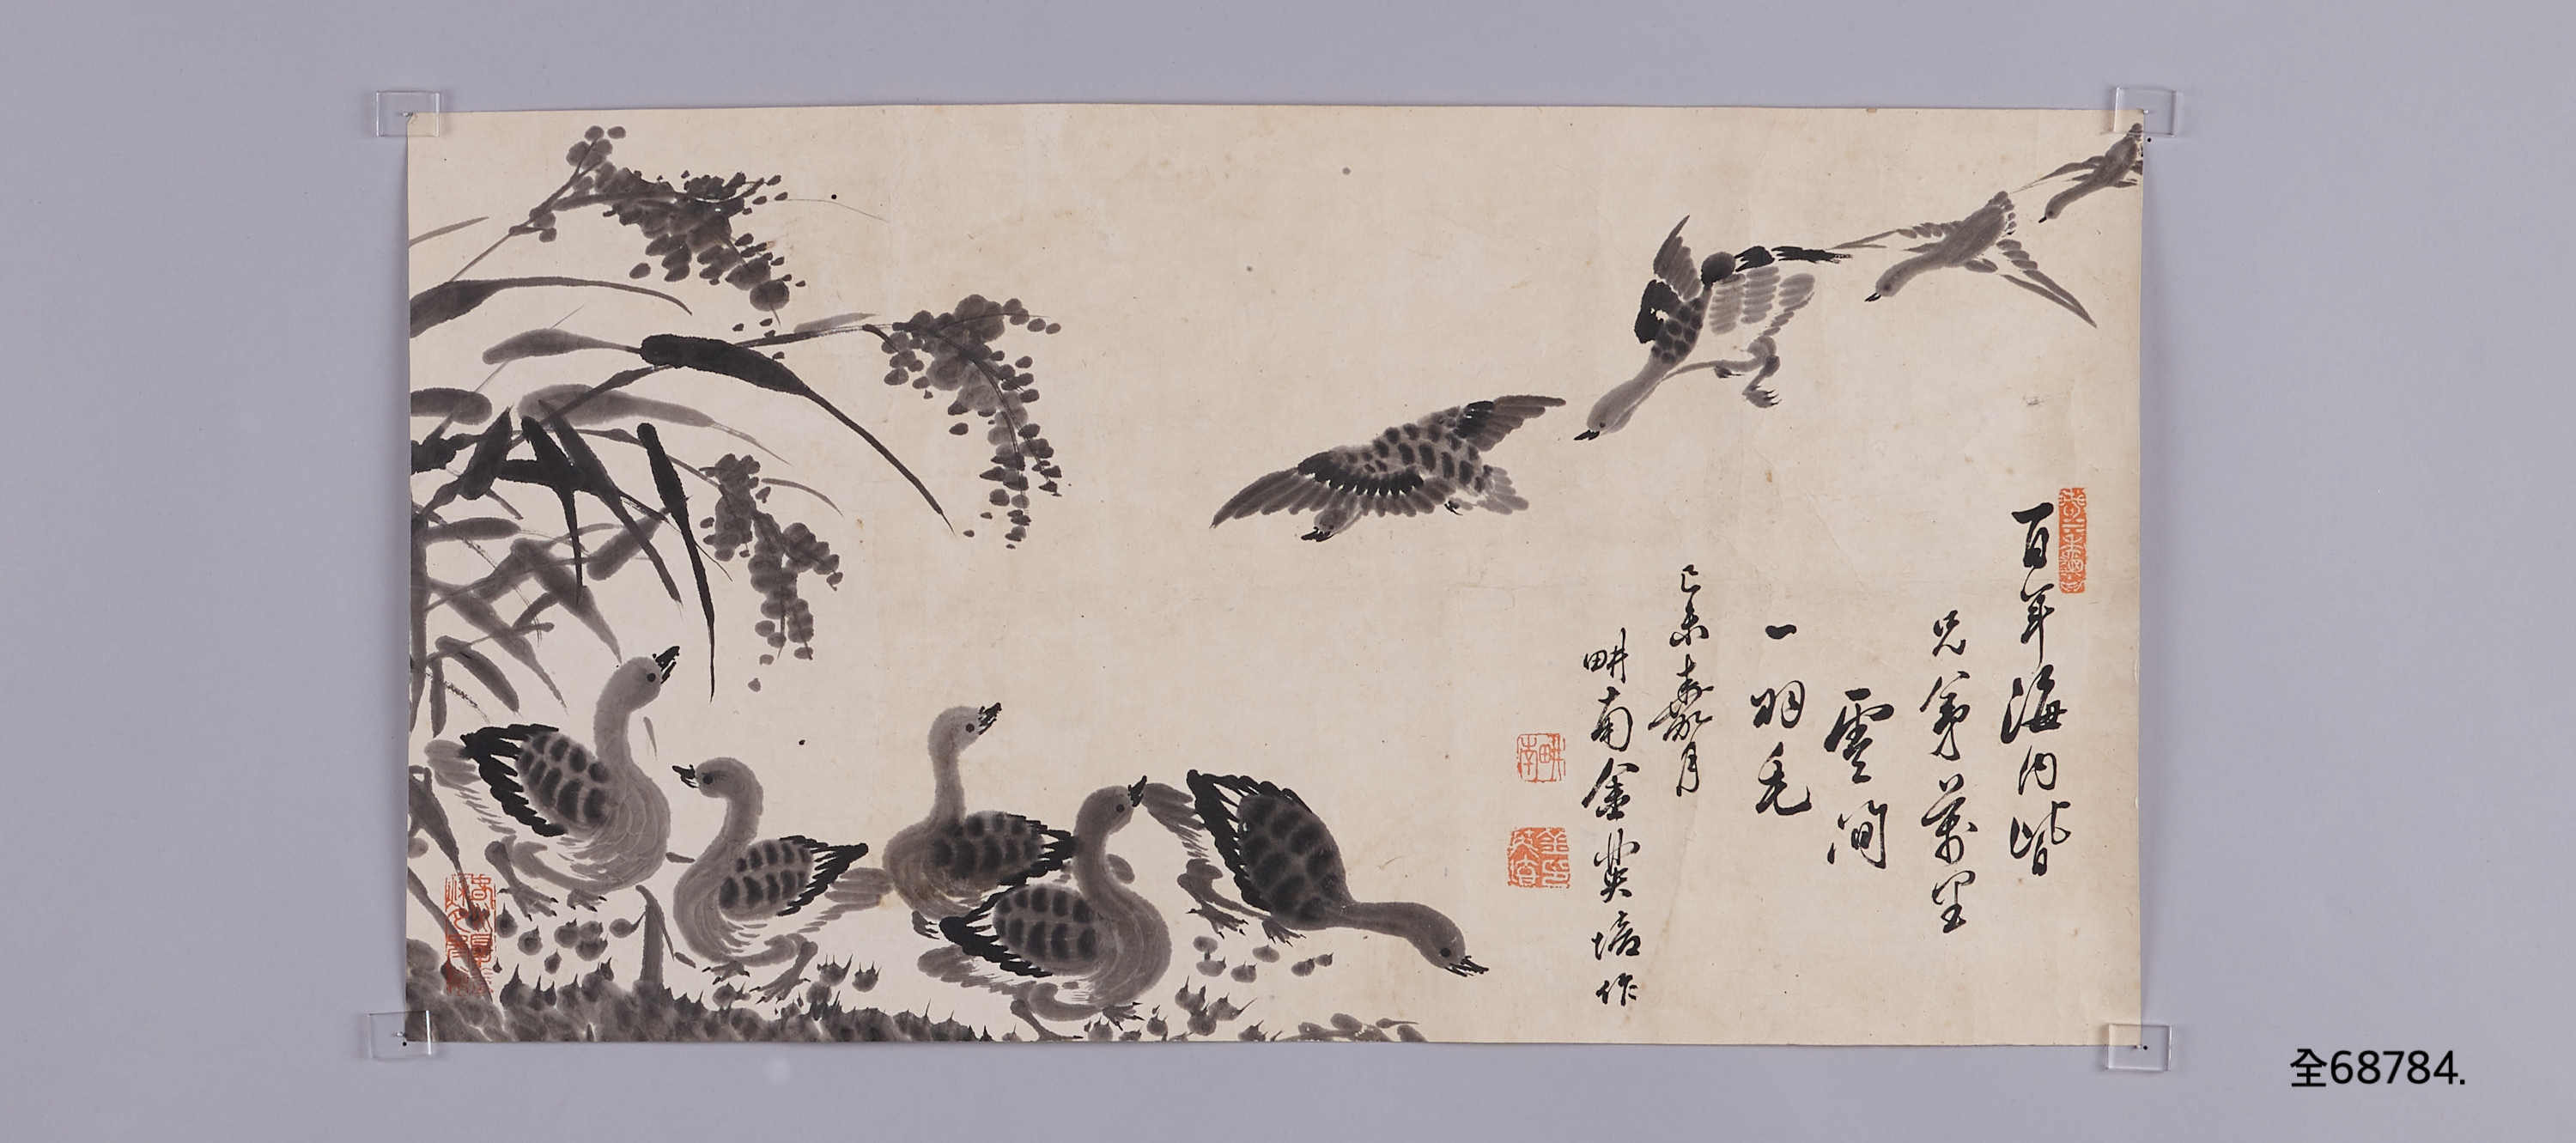 百年海内皆
兄弟萬里
雲間
一羽毛
己未嘉月
畊南金英培作
畊南
全68784.